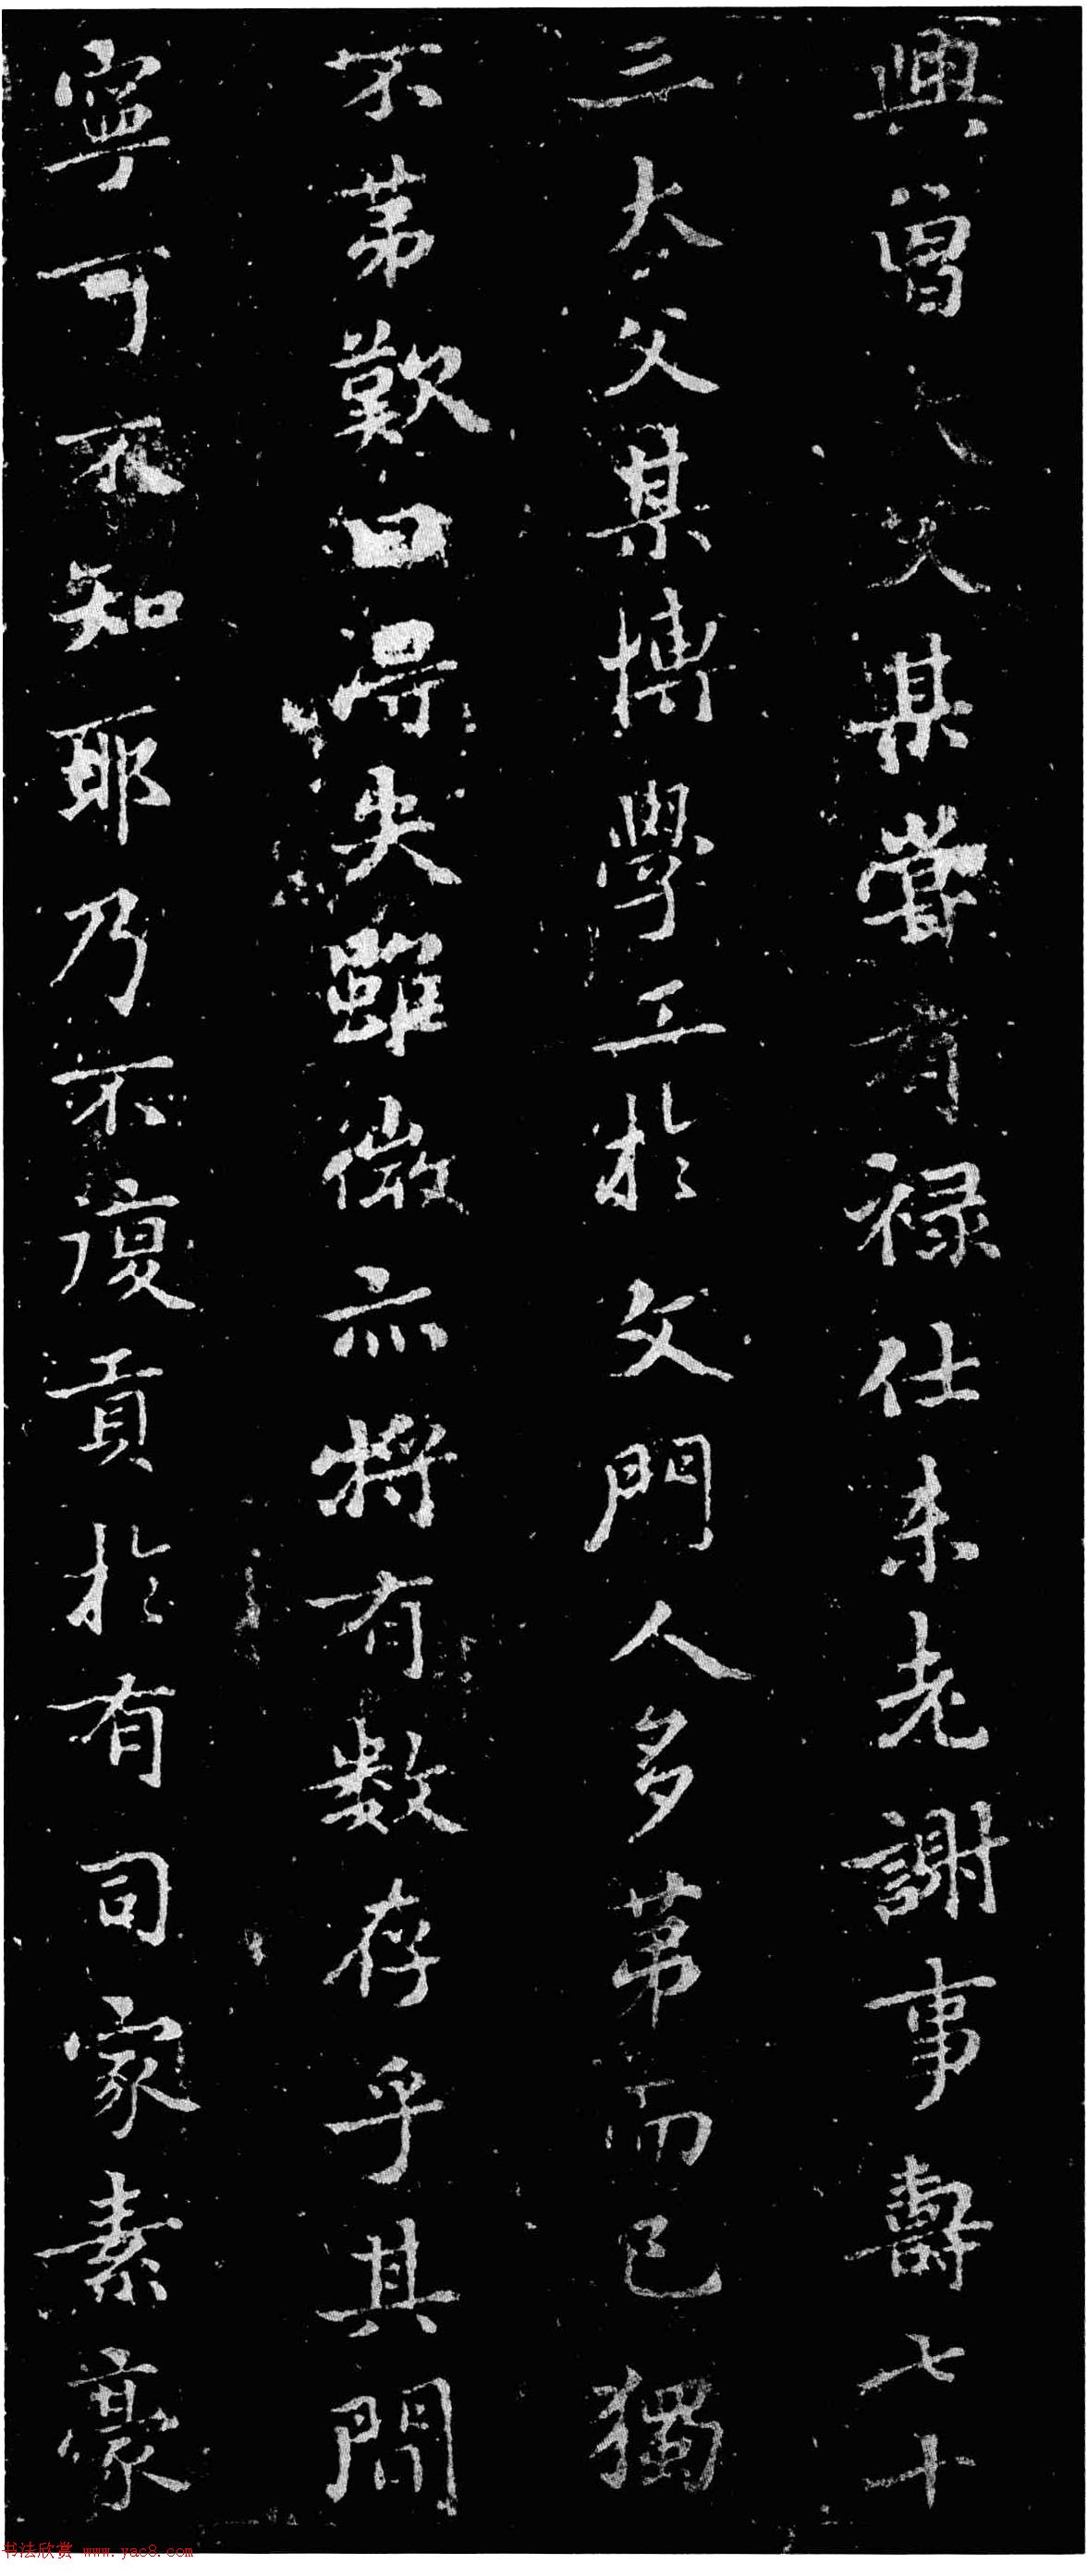 興曾大父某嘗有祿仕未老謝事壽七十
三大父某博學工於文門人多第而已獨
不第歎曰得失雖微亦將有數存乎其間
寧可不知耶乃不復貢於有司家素豪
书法欣赏 www.yac8.com